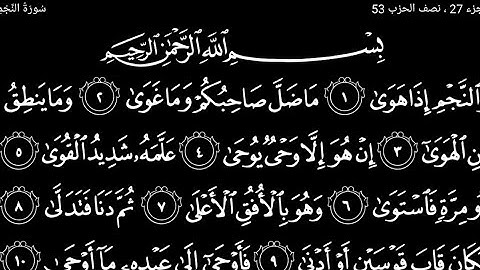 جزء 27 ، نصف الحزب 53 سُورَةُ النَّجْمِ
بِسْمِ ٱللَّهِ ٱلرَّحْمَٰنِ ٱلرَّحِيمِ
ٱلنَّجْمِ إِذَا هَوَىٰ ١ مَا ضَلَّ صَاحِبُكُمْ وَمَا غَوَىٰ ٢ وَمَا يَنطِقُ
نِ ٱلْهَوَىٰ ٣ إِنْ هُوَ إِلَّا وَحْىٌ يُوحَىٰ ٤ عَلَّمَهُۥ شَدِيدُ ٱلْقُوَىٰ ٥
و مِرَّةٍ فَٱسْتَوَىٰ ٦ وَهُوَ بِٱلْأُفُقِ ٱلْأَعْلَىٰ ٧ ثُمَّ دَنَا فَتَدَلَّىٰ ٨
كَانَ قَابَ قَوْسَيْنِ أَوْ أَدْنَىٰ ٩ فَأَوْحَىٰٓ إِلَىٰ عَبْدِهِۦ مَآ أَوْحَىٰ ١٠